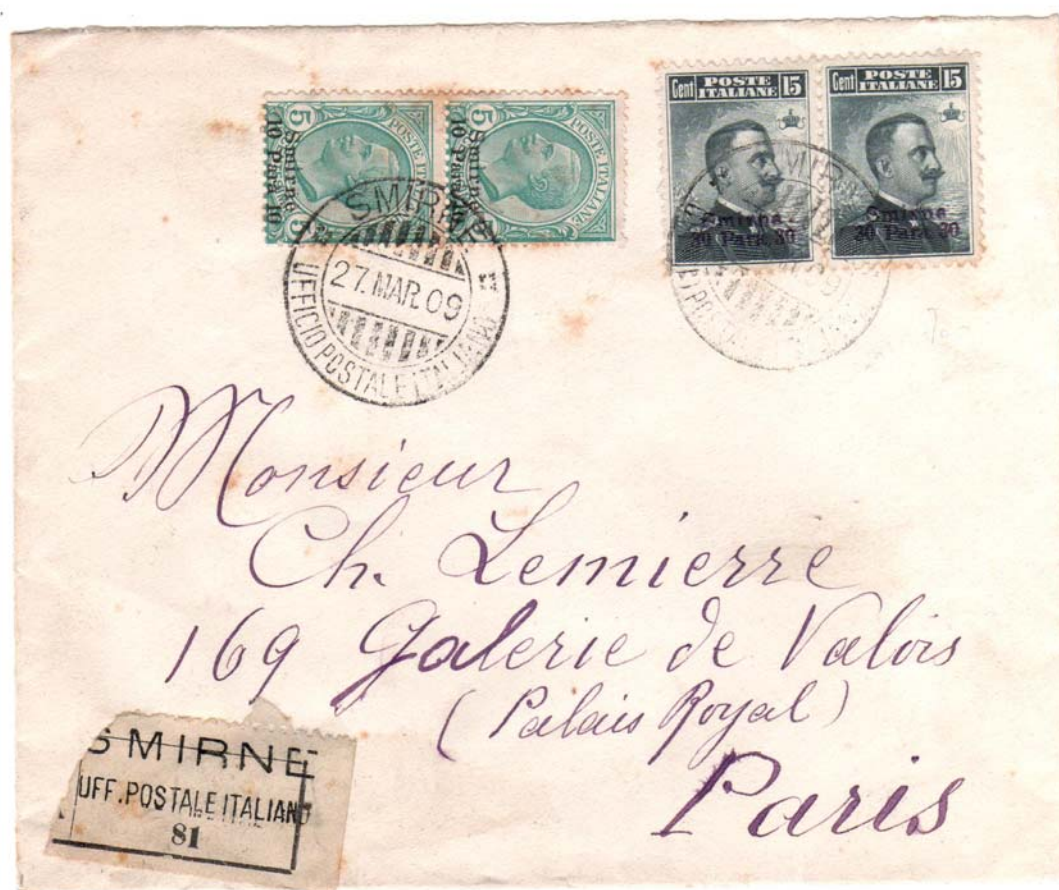 5 POSTE ITALIANE
Smirne
10 Para 10
5 POSTE ITALIANE
Smirne
10 Para 10
Cent POSTE ITALIANE 15
Smirne
30 Para 30
Cent POSTE ITALIANE 15
Smirne
30 Para 30
SMIRNE
27.MAR.09
UFFICIO POSTALE ITALIANO
Monsieur
Ch. Lemierre
169 Galerie de Valois
(Palais Royal)
Paris
SMIRNE
UFF. POSTALE ITALIANO
81